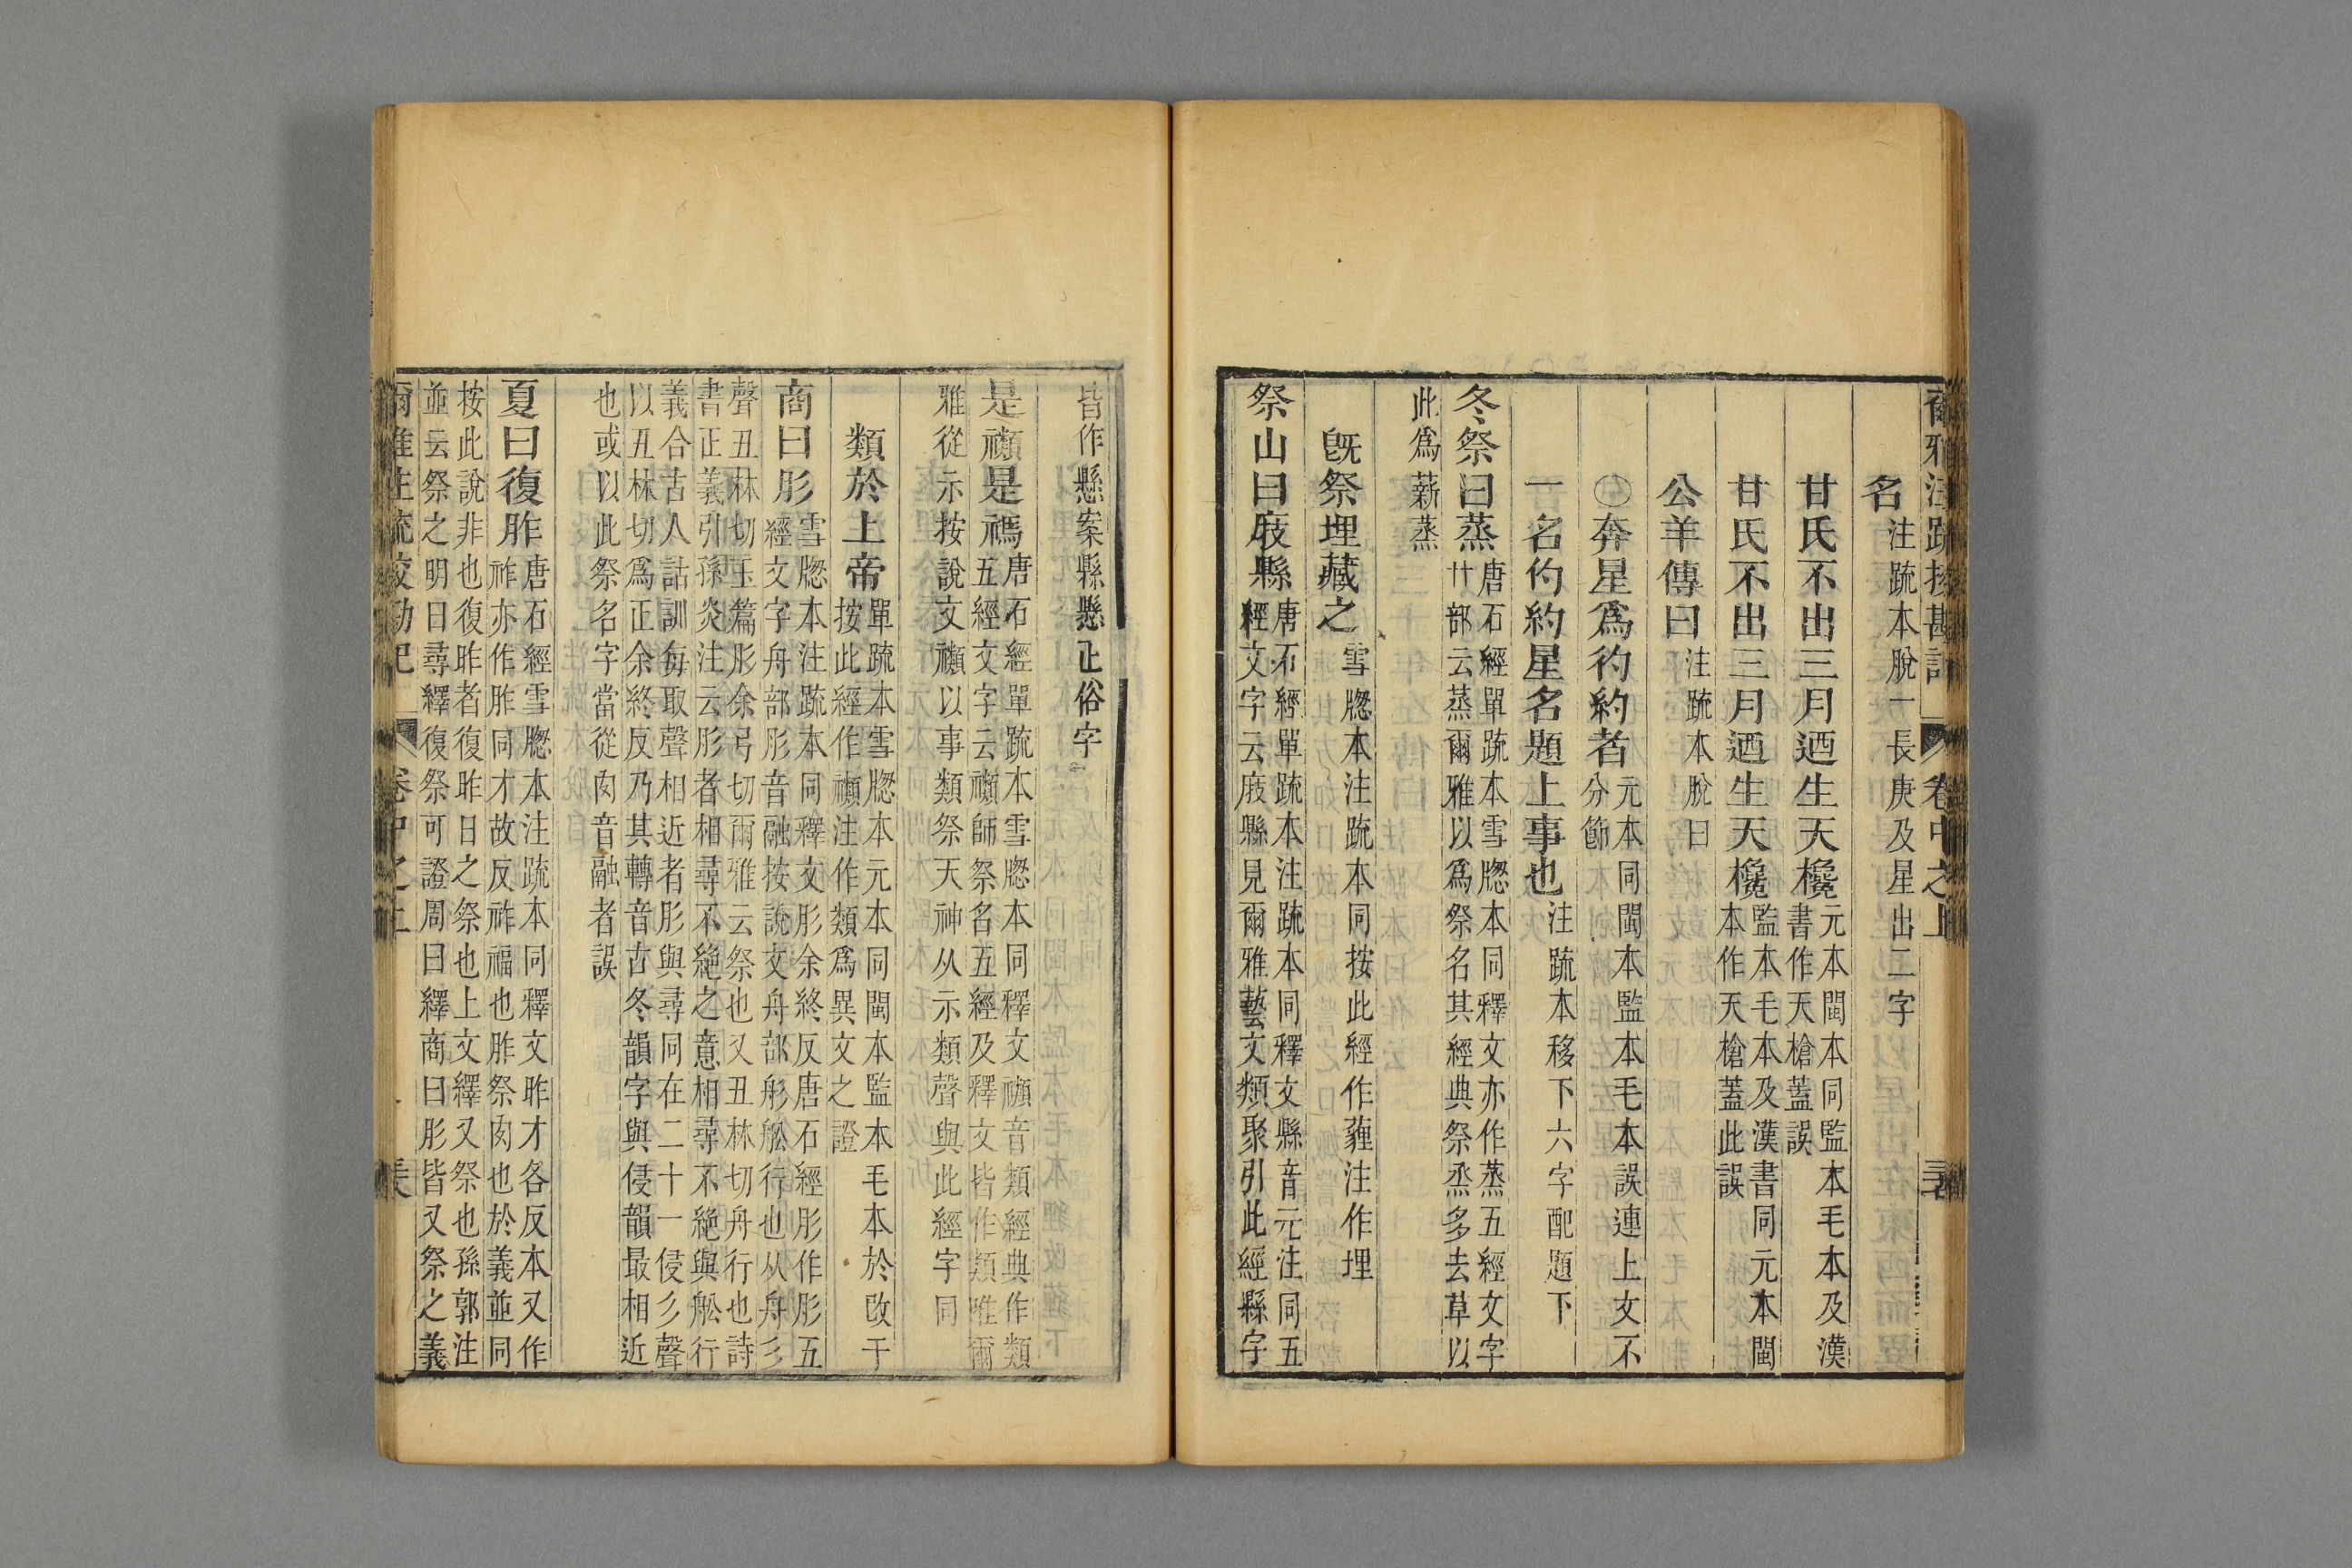 爾雅注疏挍勘記 卷中之上
名注疏本脫一長庚及星出二字
甘氏不出三月迺生天欃元本閩本同監本毛本及漢
書作天槍蓋誤
甘氏不出三月迺生天欃監本毛本及漢書同元本閩
本作天槍蓋此誤
公羊傳曰注疏本脫曰
○奔星爲彴約者元本同閩本監本毛本誤連上文不
分節
一名彴約星名題上事也注疏本移下六字配題下
冬祭曰蒸唐石經單疏本雪牎本同釋文亦作蒸五經文字
廾部云蒸爾雅以爲祭名其經典祭烝多去草以
此爲薪蒸
旣祭埋藏之雪牎本注疏本同按此經作薶注作埋
祭山曰庪縣唐石經單疏本注疏本同釋文縣音元注同五
經文字云庪縣見爾雅藝文類聚引此經縣字
皆作懸案縣懸正俗字
是禷是禡唐石經單疏本雪牎本同釋文禷音類經典作類
五經文字云禷師祭名五經及釋文皆作類唯爾
雅從示按說文禷以事類祭天神从示類聲與此經字同
類於上帝單疏本雪牎本元本同閩本監本毛本於改于
按此經作禷注作類爲異文之證
商曰肜雪牎本注疏本同釋文肜余終反唐石經肜作肜五
經文字舟部肜音融按說文舟部彤舩行也从舟彡
聲丑林切玉篇肜余弓切爾雅云祭也又丑林切舟行也詩
書正義引孫炎注云肜者相尋不絶之意相尋不絶與舩行
義合古人詁訓每取聲相近者肜與尋同在二十一侵彡聲
以丑林切爲正余終反乃其轉音古冬韻字與侵韻最相近
也或以此祭名字當從肉音融者誤
夏曰復胙唐石經雪牎本注疏本同釋文昨才各反本又作
祚亦作胙同才故反祚福也胙祭肉也於義並同
按此說非也復昨者復昨日之祭也上文繹又祭也孫郭注
並云祭之明日尋繹復祭可證周曰繹商曰肜皆又祭之義
爾雅注疏挍勘記 卷中之上